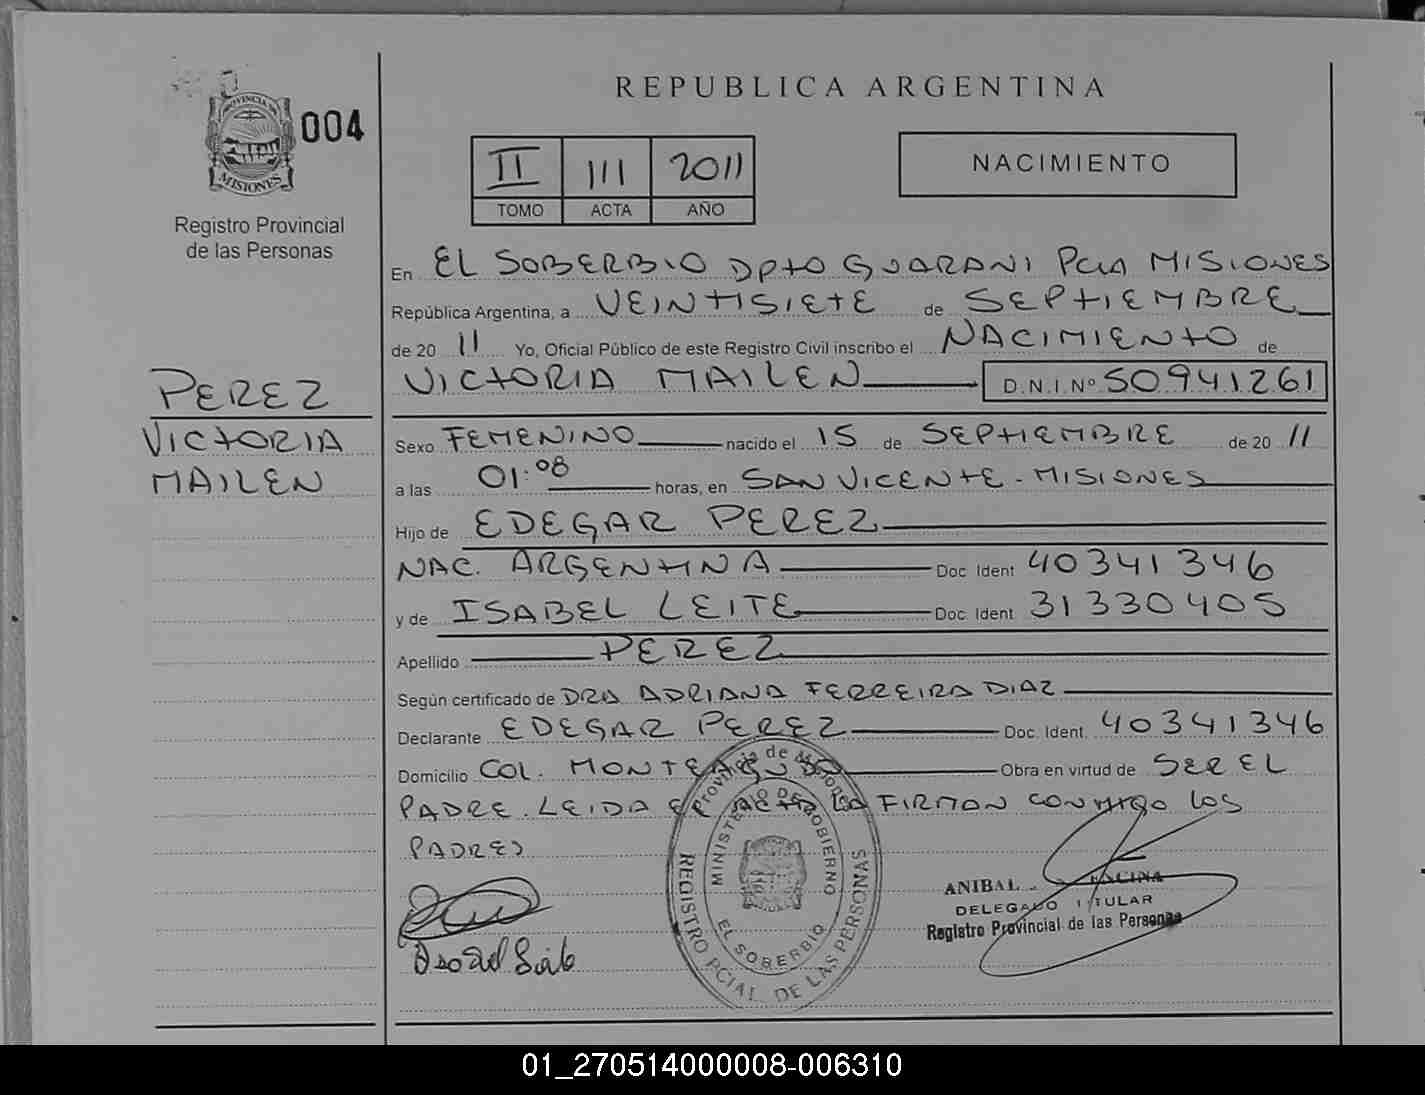 PROVINCIA DE
MISIONES
004
Registro Provincial
de las Personas
REPUBLICA ARGENTINA
II 111 2011
TOMO ACTA AÑO
NACIMIENTO
En EL SOBERBIO DPTO GUARANI PCIA MISIONES
República Argentina, a VEINTISIETE de SEPTIEMBRE
de 20 11 Yo, Oficial Público de este Registro Civil inscribo el NACIMIENTO de
VICTORIA MAILEN D.N.I.Nº 50941261
PEREZ
VICTORIA
MAILEN
Sexo FEMENINO nacido el 15 de SEPTIEMBRE de 20 11
a las 01:08 horas, en SAN VICENTE - MISIONES
Hijo de EDEGAR PEREZ
NAC. ARGENTINA Doc. Ident. 40341346
y de ISABEL LEITE Doc. Ident. 31330405
Apellido PEREZ
Según certificado de DRA ADRIANA FERREIRA DIAZ
Declarante EDEGAR PEREZ Doc. Ident. 40341346
Domicilio COL. MONTEAGUDO Obra en virtud de SER EL
PADRE. LEIDA EL ACTA LA FIRMAN CONMIGO LOS
PADRES
Provincia de Misiones
MINISTERIO DE GOBIERNO
EL SOBERBIO
REGISTRO PCIAL DE LAS PERSONAS
ANIBAL
DELEGADO TITULAR
Registro Provincial de las Personas
01_270514000008-006310